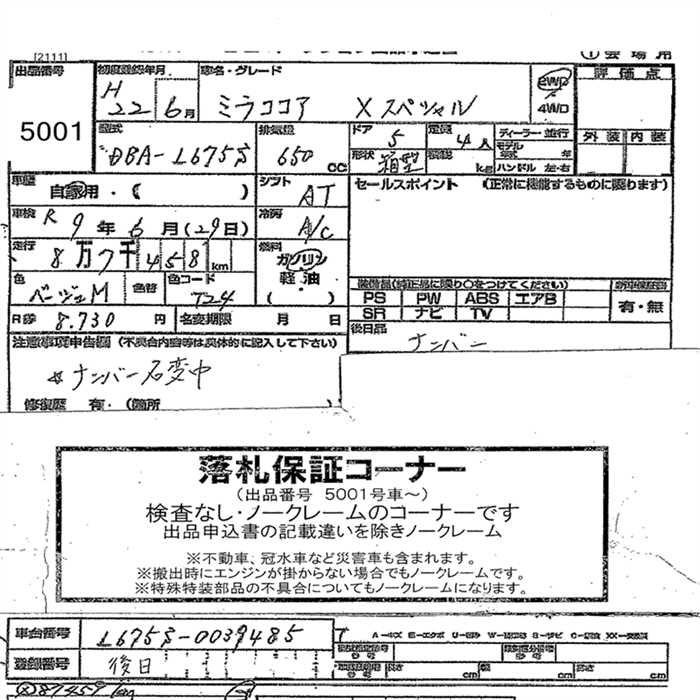 [2111]
①会場用
出品番号 5001
初度登録年月 H22年6月
車名・グレード ミラココア Xスペシャル
2WD 4WD
評価点
外装 内装
型式 DBA-L675S
排気量 650 CC
ドア 5
定員 4人
形状 箱型
積載 kg
ディーラー・並行
モデル年式 年
ハンドル 左・右
車歴 自家用・( )
シフト AT
セールスポイント (正常に機能するものに限ります)
車検 R9年6月(29日)
冷房 A/C
走行 8万7千458km
燃料 ガソリン 軽油 ( )
色 ベージュM
色替
色コード T24
装備品(純正品に限り○をつけてください)
PS PW ABS エアB
SR ナビ TV
新車保証書 有・無
R券 8.730円
名変期限 月 日
後日品 ナンバー
注意事項申告欄 (不具合内容等は具体的に記入して下さい)
☆ナンバー名変中
修復歴 有・(箇所
落札保証コーナー
(出品番号 5001号車~)
検査なし・ノークレームのコーナーです
出品申込書の記載違いを除きノークレーム
※不動車、冠水車など災害車も含まれます。
※搬出時にエンジンが掛からない場合でもノークレームです。
※特殊特装部品の不具合についてもノークレームになります。
車台番号 L675S-0039485
登録番号 後日
A-キズ E-エクボ U-凹み W-補修跡 S-サビ C-腐蝕 XX-交換済
長さ cm 幅 cm 高さ cm
87458km